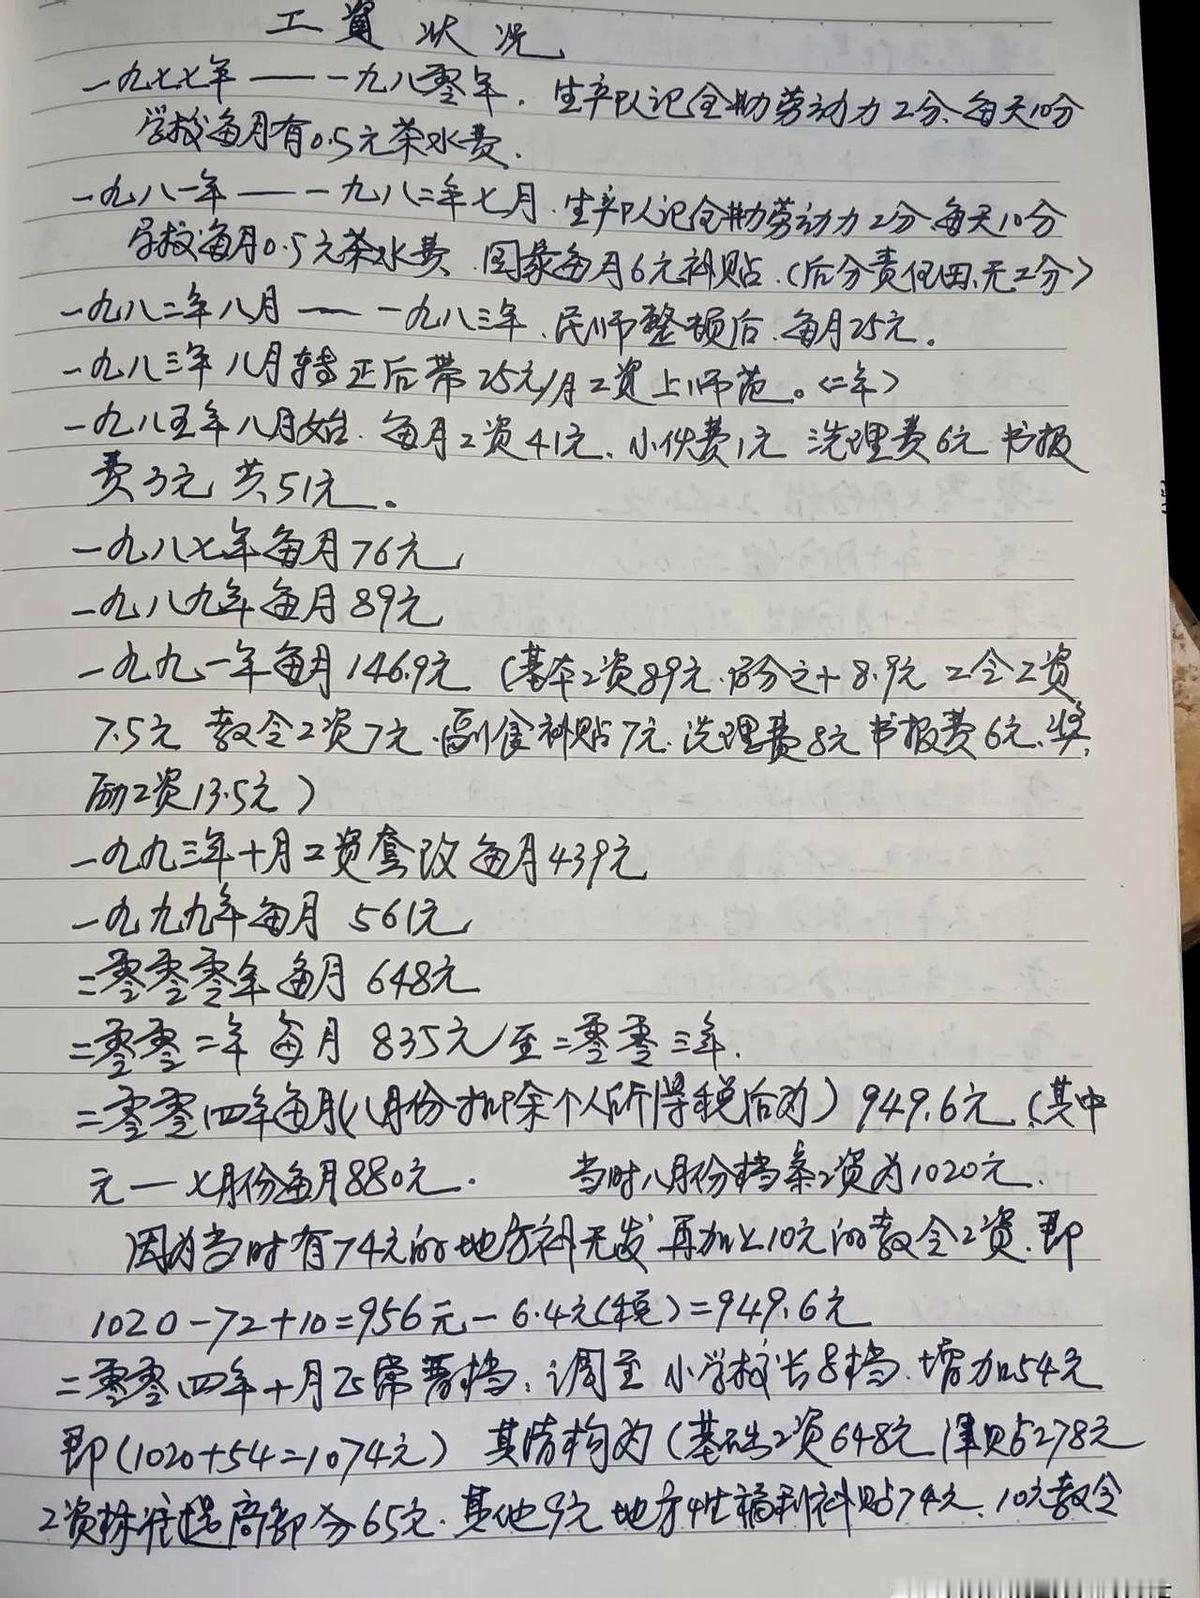 工資状况
一九七七年——一九八零年，生产队记全勤劳动力工分、每天10分
学校每月有0.5元茶水费．
一九八一年——一九八二年七月．生产队记全勤劳动力工分、每天10分
学校每月0.5元茶水费．国家每月6元补贴．（后分责任田，无工分）
一九八二年八月——一九八三年．民师整顿后．每月25元。
一九八三年八月转正后带25元/月工资上师范。（二年）
一九八五年八月始．每月工资41元．小伙费1元 洗理费6元 书报
费3元 共51元。
一九八七年每月76元
一九八九年每月89元
一九九一年每月146.9元（基本工资89元．百分之十8.9元 工令工资
7.5元 教令工资7元．副食补贴7元．洗理费8元 书报费6元．奖
励工资13.5元）
一九九三年十月工资套改每月439元
一九九九年每月 561元
二零零零年每月 648元
二零零二年每月 835元/至二零零三年．
二零零四年每月（八月份扣除个人所得税后为）949.6元（其中
元一七月份每月880元． 当时八月份档案工资为1020元．
因为当时有74元的地方补无发 再加上10元的教令工资．即
1020－72＋10＝956元－6.4元（税）＝949.6元
二零零四年十月正常晋档，调至小学校长8档．增加54元
即（1020+54=1074元） 其结构为（基础工资648元 津贴278元
工资标准提高部分65元．其他9元 地方性福利补贴74元．10元教令